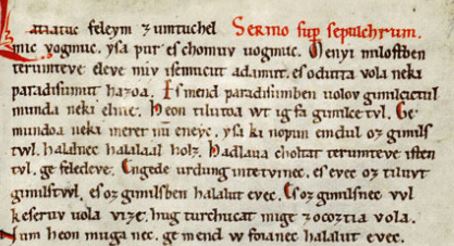 Latiatuc feleym zumtuchel Sermo sup sepulchrum.
mic vogmuc. ysa pur es chomuv uogmuc. Menyi milostben
terumteve eleve miv isemucut adamut. es odutta vola neki
paradisumut hazoa. Es mend paradisumben uolov gimilcictul
munda neki elnie. Heon tilutoa wt ig fa gimilce tvl. Ge
mundoa neki meret nū eneyc. ysa ki nopun emdul oz gimils
twl. halalnec halalaal holz. Hadlaua choltat terumteve isten
tvl. ge feledeve. Engede urdung intetvinec. es evec oz tiluvt
gimilstwl. es oz gimilsben halalut evec. Es oz gimilsnec vvl
keseruv uola vize. hug turchucat mige zocoztia vola.
Num heon muga nec. ge mend w foianec halalut evec.